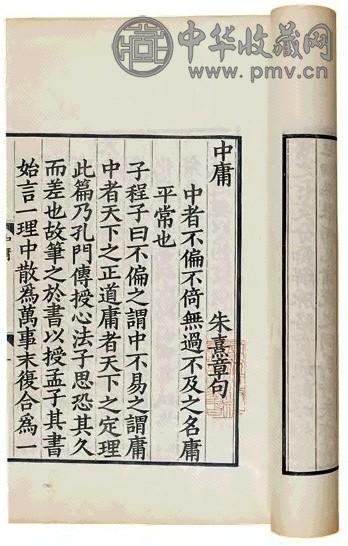 中华收藏网
www.pmv.cn
中庸
朱熹章句
中者不偏不倚無過不及之名庸
平常也
子程子曰不偏之謂中不易之謂庸
中者天下之正道庸者天下之定理
此篇乃孔門傳授心法子思恐其久
而差也故筆之於書以授孟子其書
始言一理中散為萬事末復合為一